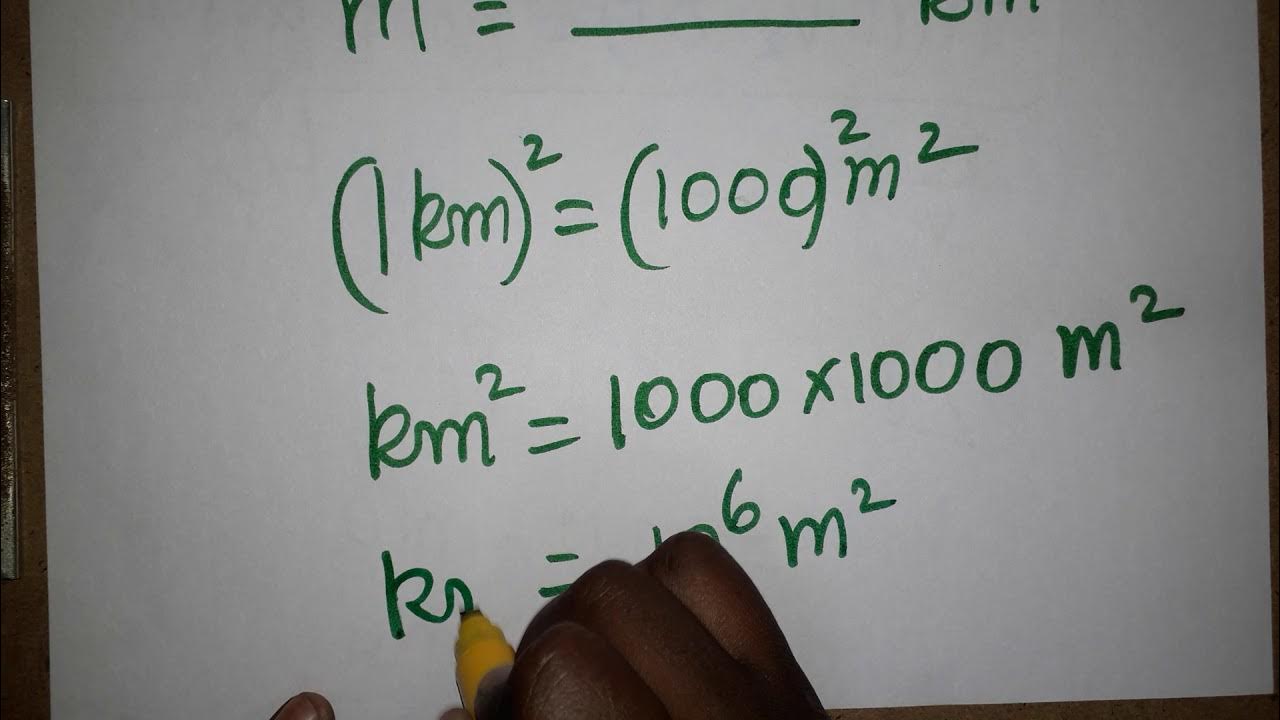 m = ______ km
(1km)² = (1000)²m²
km² = 1000×1000 m²
km = 10⁶ m²